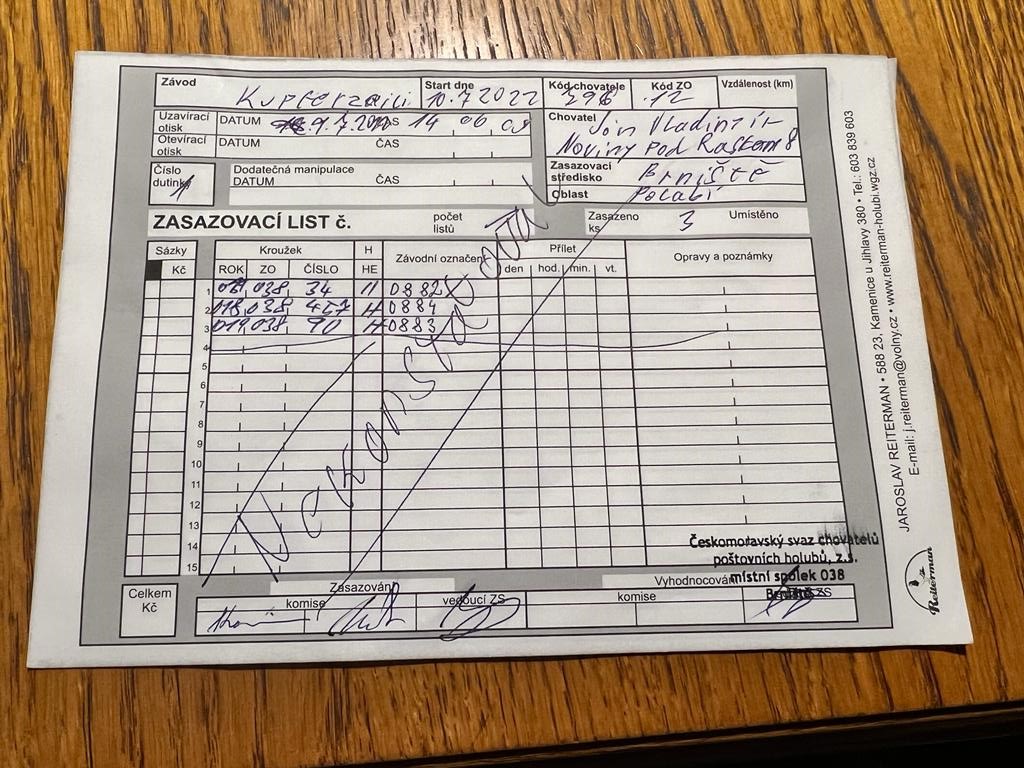 Závod Kupferzell Start dne 10.7 2022 Kód chovatele 398 Kód ZO 12 Vzdálenost (km)
Uzavírací otisk DATUM 9.7.2022 ČAS 14 06 09
Chovatel Jón Vladimír
Noviny pod Ralskem 8
Otevírací otisk DATUM ČAS
Číslo dutinky 1
Dodatečná manipulace
DATUM ČAS
Zasazovací středisko Brniště
Oblast Polabí
ZASAZOVACÍ LIST č. počet listů Zasazeno ks 3 Umístěno
Sázky Kroužek H Závodní označení Přílet Opravy a poznámky
Kč ROK ZO ČÍSLO HE den hod. min. vt.
1 038 34 H 0882
2 018 038 457 H 0884
3 019 038 90 H 0883
4
5
6
7
8
9
10
11
12
13
14
15
Nekonstatoval
Českomoravský svaz chovatelů
poštovních holubů, z.s.
místní spolek 038
Brniště
Celkem Kč
Zasazování Vyhodnocování
komise vedoucí ZS komise ZS
JAROSLAV REITERMAN • 588 23, Kamenice u Jihlavy 380 • Tel.: 603 839 603
E-mail: j.reiterman@volny.cz • www.reiterman-holubi.wgz.cz
Reiterman